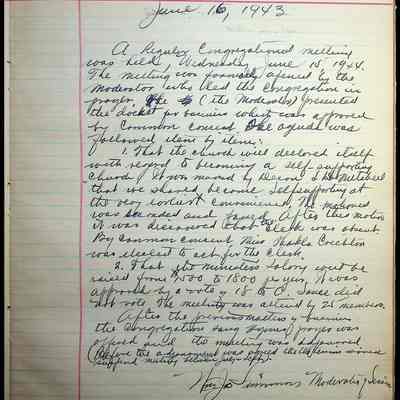 June 16, 1943
A Regular Congregational meeting
was held, Wednesday June 15 1944.
The meeting was formally opened by the
Moderator who led the Congregation in
prayer. He (the Moderator) presented
the docket for business which was approved
by Common consent the agenda was
followed item by item:
1. That the church will declared itself
with regard to becoming a self supporting
Church. It was moved by Deacon Mitchell
that we should become Self supporting at
the very earliest convenience. The motion
was seconded and passed. After this motion
it was discovered that the Clerk was absent
By common consent Miss
was elected to act for the Clerk.
2. That the ministers salary would be
raised from 1500 to 1800 per year. It was
approved by a vote 18 to 0. Some did
not vote. The meeting was attend by 25 members.
After the previous matters of business
the Congregation sang prayer was
offered until the meeting was adjourned
(Before the adjournment was
meeting
Simmons Moderator